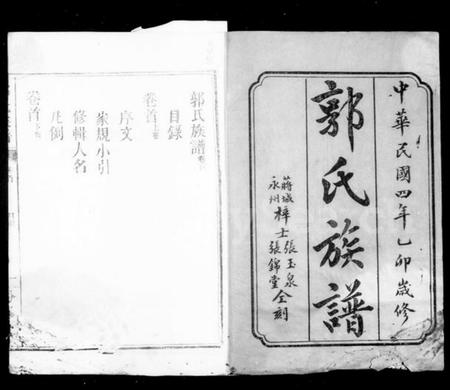 中華民國四年乙卯歲修
郭氏族譜
蔣城 張玉泉
永州 梓士 張錦堂 仝刻
郭氏族譜
目錄
卷首上
序文
家規小引
修輯人名
凡例
卷首